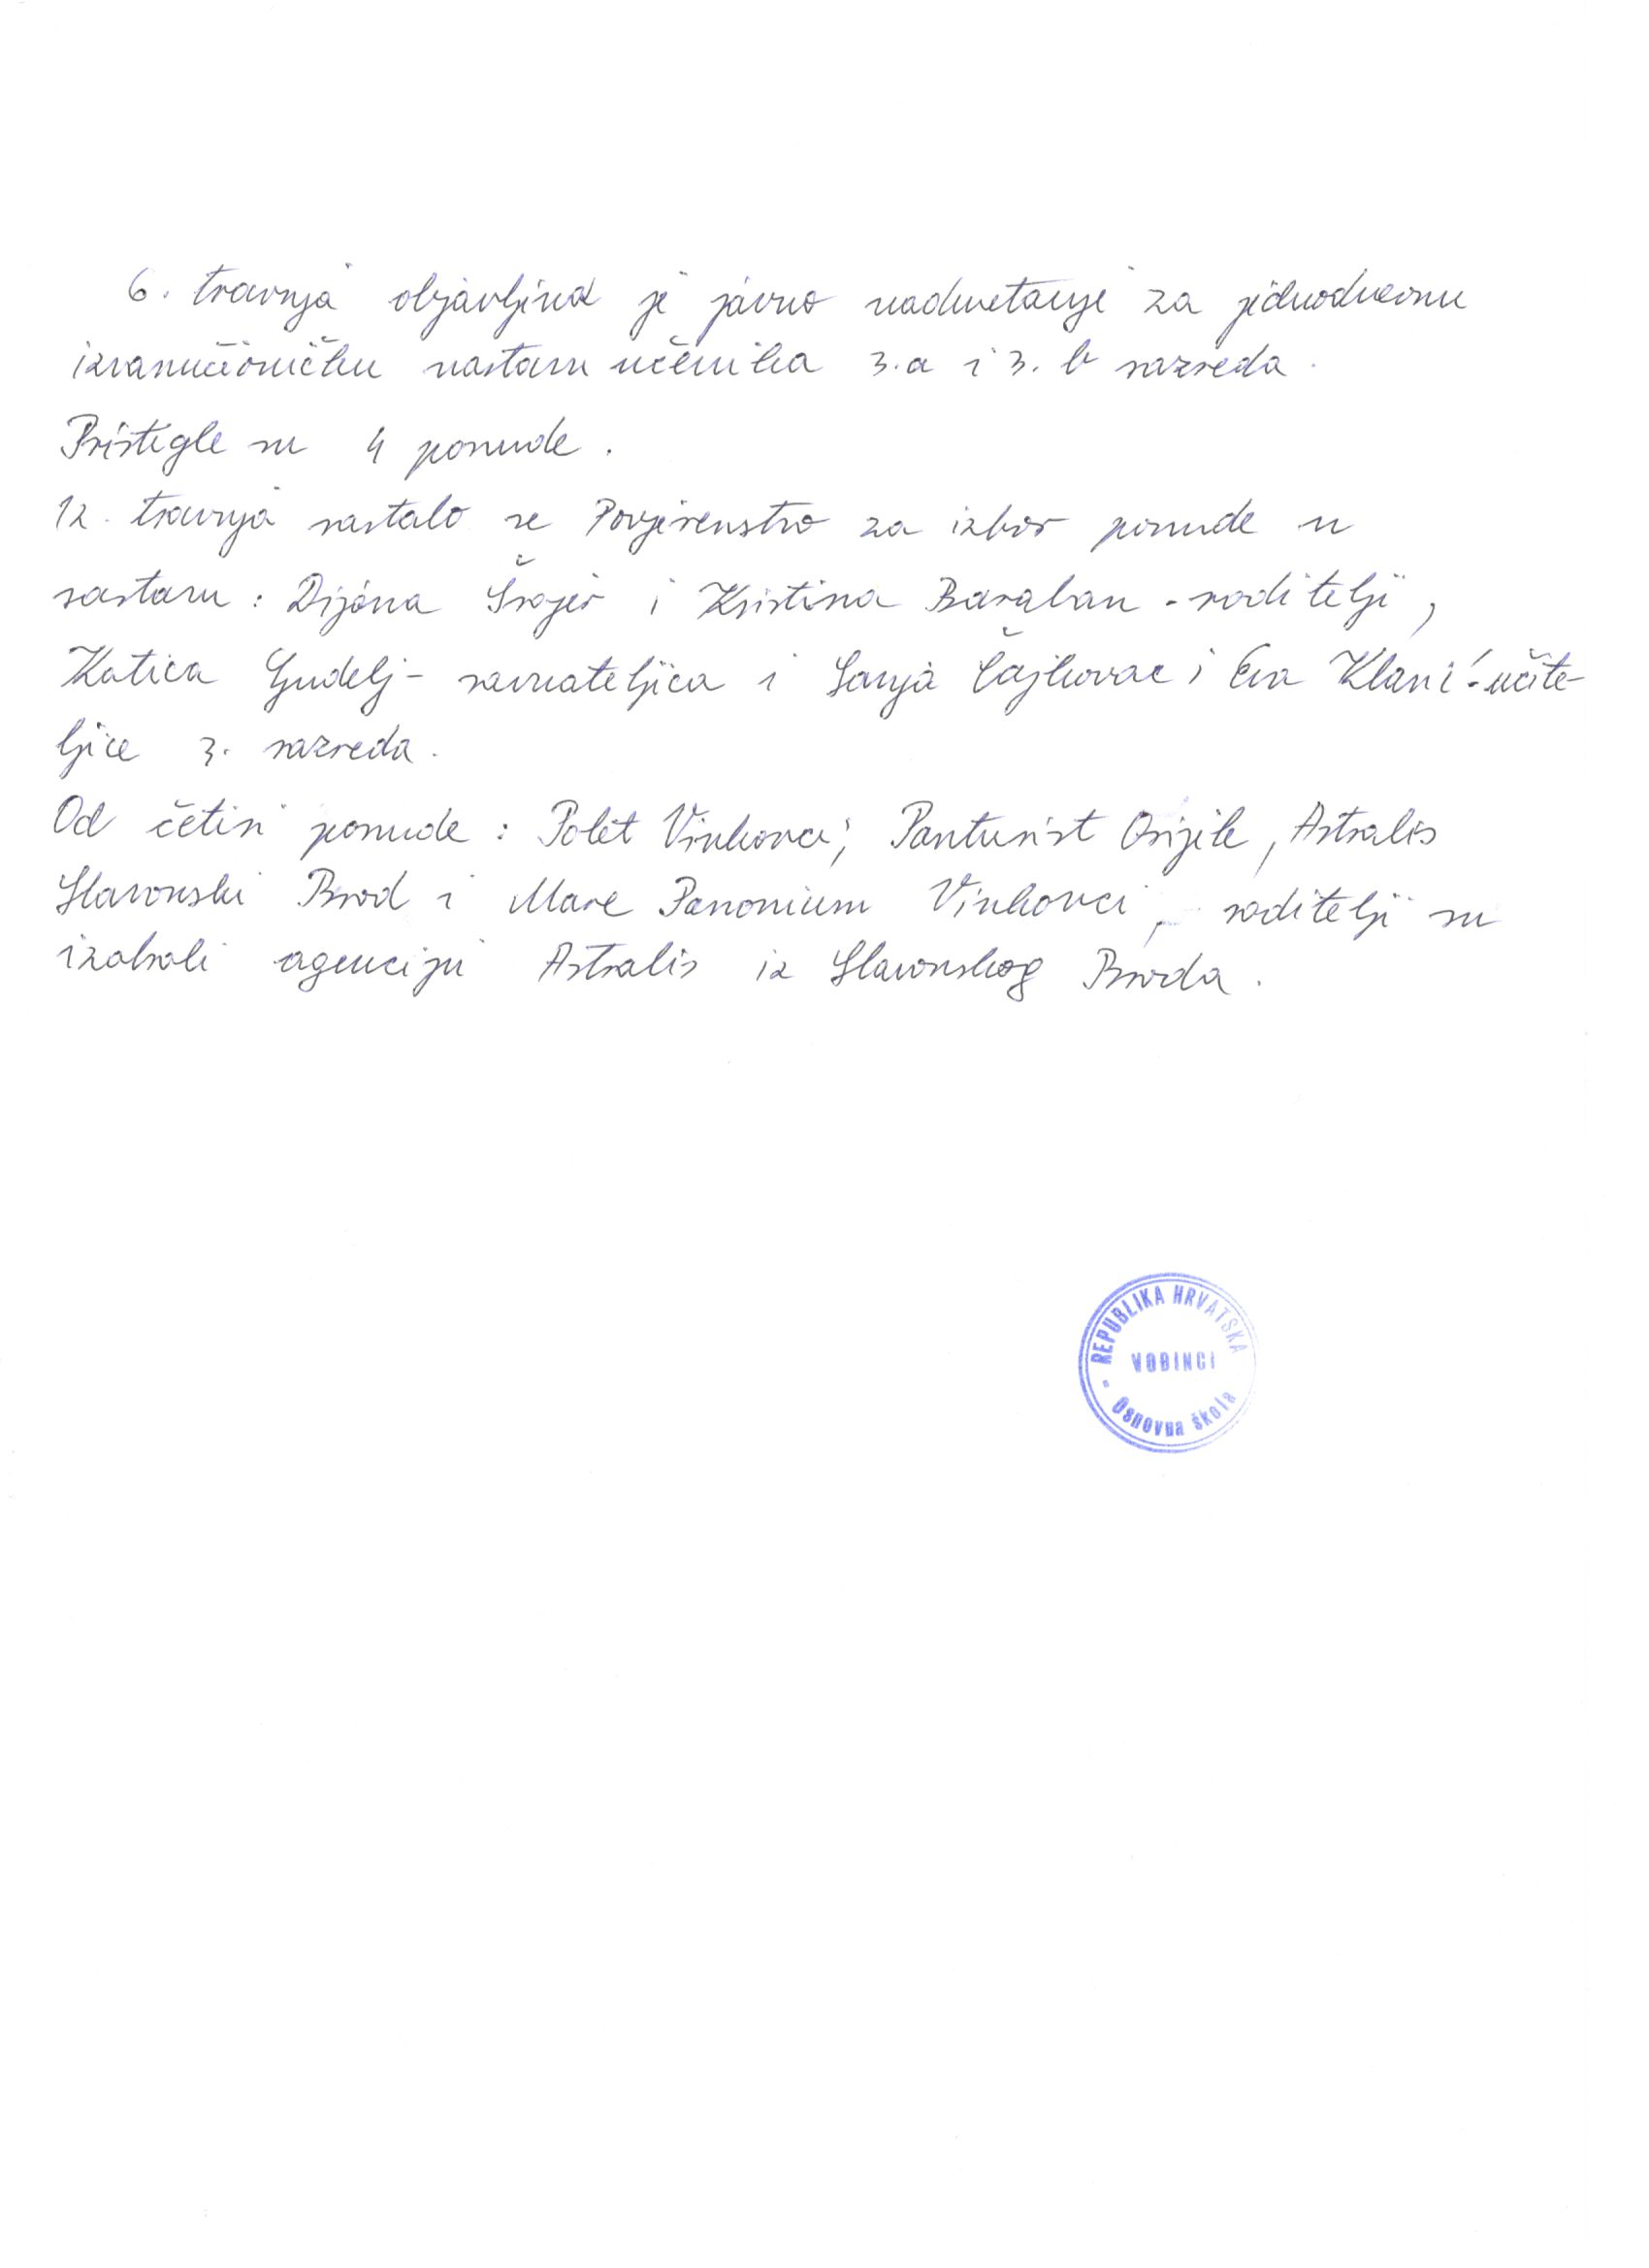 6. travnja objavljena je javno nadmetanje za jednodnevnu
izvanučioničku nastavu učenika 3.a i 3. b razreda.
Pristigle su 4 ponude.
12. travnja sastalo se Povjerenstvo za izbor ponude u
sastavu: Dijana Šrajer i Kristina Baraban - roditelji,
Katica Gudelj - ravnateljica i Sanja Čajkovac i Eva Klarić - učite-
ljice 3. razreda.
Od četiri ponude: Polet Vinkovci, Panturist Osijek, Astralis
Slavonski Brod i Mare Panonium Vinkovci, roditelji su
izabrali agenciju Astralis iz Slavonskog Broda.
REPUBLIKA HRVATSKA
VOĐINCI
Osnovna škola